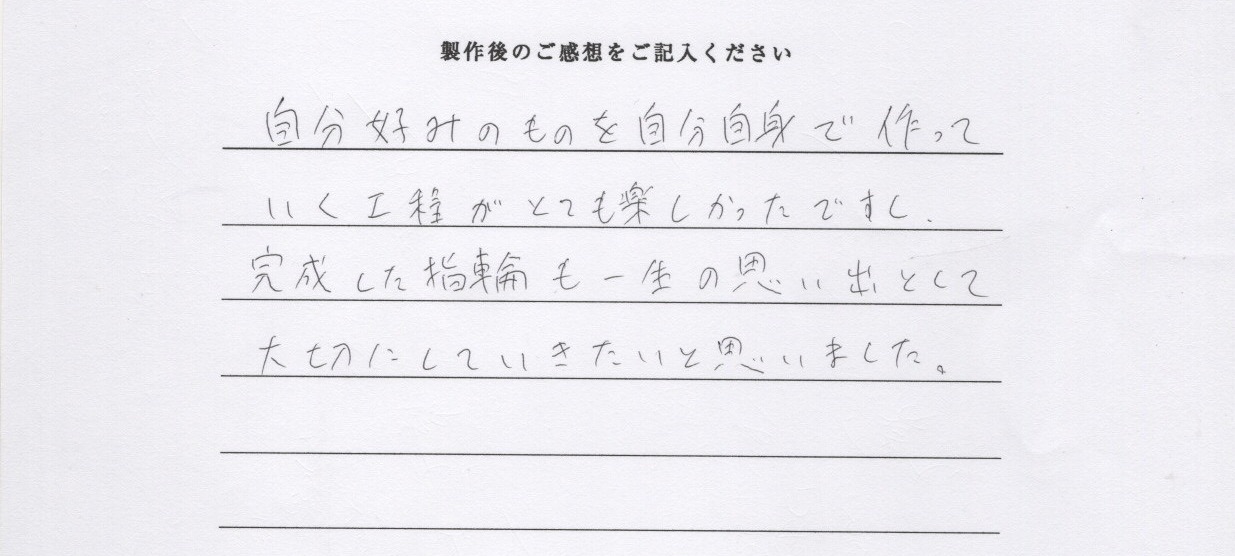 製作後のご感想をご記入ください
自分好みのものを自分自身で作って
いく工程がとても楽しかったですし、
完成した指輪も一生の思い出として
大切にしていきたいと思いました。